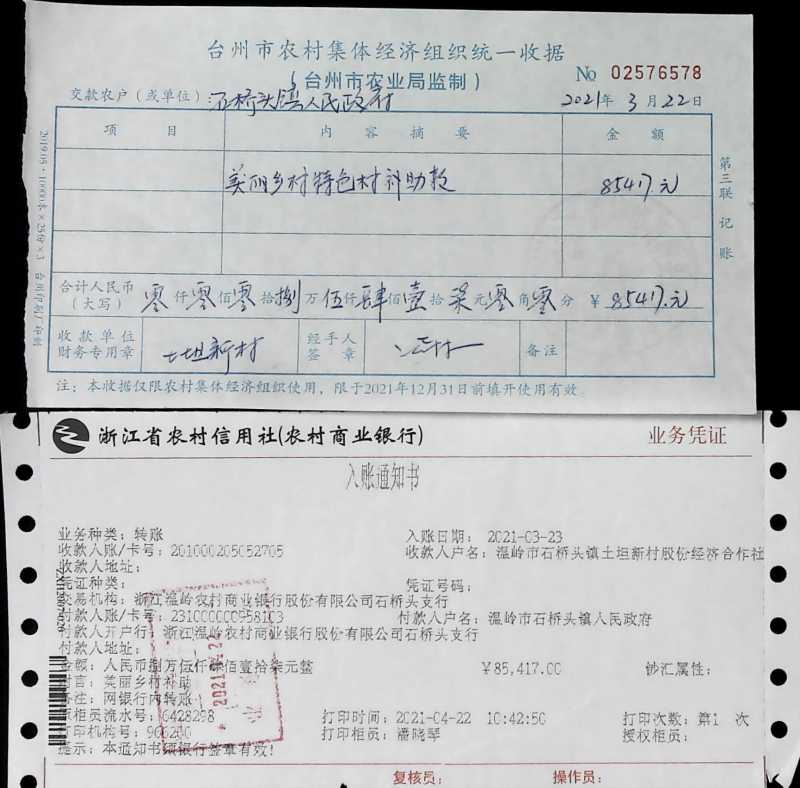 台州市农村集体经济组织统一收据
(台州市农业局监制)
No 02576578
交款农户(或单位):石桥头镇人民政府
2021年3月22日
项 目 内容摘要 金额
美丽乡村特色村补助款 85417元
合计人民币(大写) 零仟零佰零拾捌万伍仟肆佰壹拾柒元零角零分 ¥85417.元
收款单位财务专用章 土坦新村 经手人签章 备注
注:本收据仅限农村集体经济组织使用,限于2021年12月31日前填开使用有效。
第三联 记账
2019.05·10000本×25份×3 台州印刷厂印制
浙江省农村信用社(农村商业银行) 业务凭证
入账通知书
业务种类:转账 入账日期: 2021-03-23
收款人账/卡号:201000205052705 收款人户名:温岭市石桥头镇土坦新村股份经济合作社
收款人地址:
凭证种类: 凭证号码:
交易机构:浙江温岭农村商业银行股份有限公司石桥头支行
付款人账/卡号:231000000958103 付款人户名:温岭市石桥头镇人民政府
付款人开户行:浙江温岭农村商业银行股份有限公司石桥头支行
付款人地址:
金额:人民币捌万伍仟肆佰壹拾柒元整 ¥85,417.00 钞汇属性:
附言:美丽乡村补助
备注:网银行内转账
柜员流水号:6428298 打印时间:2021-04-22 10:42:50 打印次数:第1 次
打印机构号:966200 打印柜员:潘晓琴 授权柜员:
提示:本通知书须银行签章有效!
复核员: 操作员: